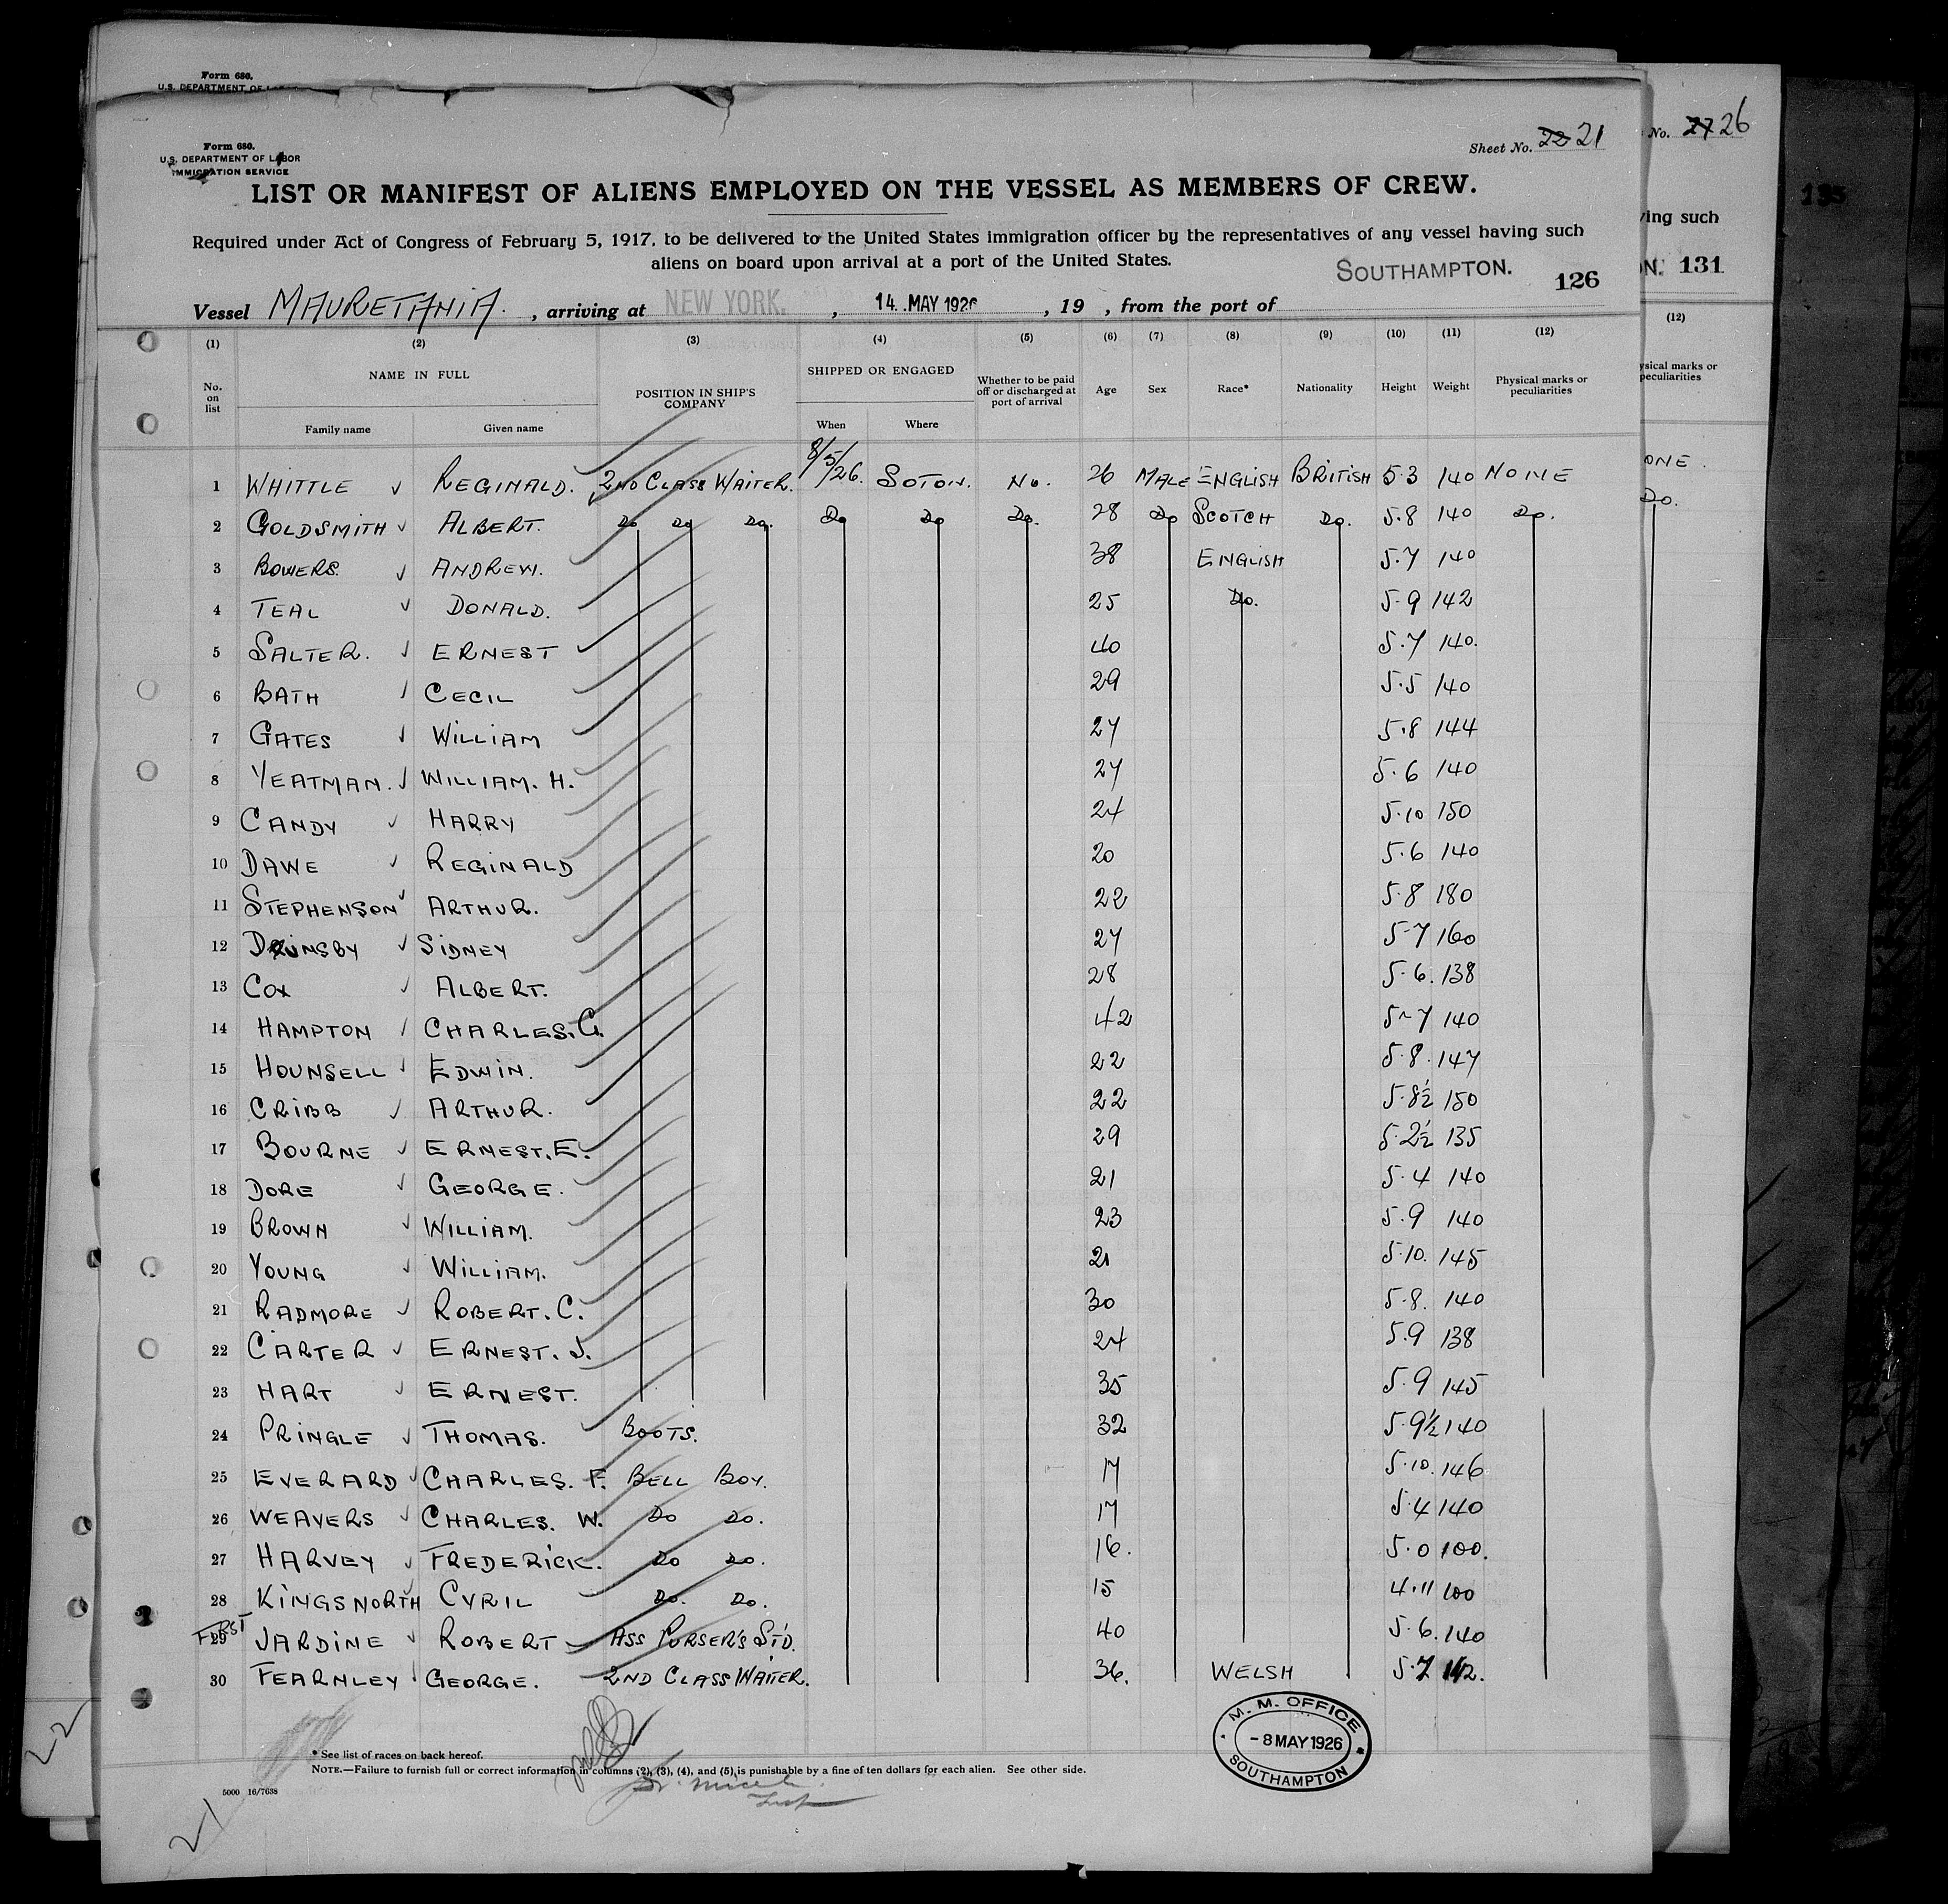 Form 680.
U.S. DEPARTMENT OF LABOR
Form 680.
U.S. DEPARTMENT OF LABOR
IMMIGRATION SERVICE
Sheet No. 22 21
No. 27 26
LIST OR MANIFEST OF ALIENS EMPLOYED ON THE VESSEL AS MEMBERS OF CREW.
Required under Act of Congress of February 5, 1917, to be delivered to the United States immigration officer by the representatives of any vessel having such
ving such
aliens on board upon arrival at a port of the United States.
SOUTHAMPTON. 126
N. 131
Vessel MAURETANIA. , arriving at NEW YORK. , 14. MAY 1926 , 19 , from the port of
(1) (2) (3) (4) (5) (6) (7) (8) (9) (10) (11) (12)
(12)
No. on list NAME IN FULL POSITION IN SHIP'S COMPANY SHIPPED OR ENGAGED Whether to be paid off or discharged at port of arrival Age Sex Race* Nationality Height Weight Physical marks or peculiarities
ysical marks or
peculiarities
Family name Given name When Where
1 WHITTLE REGINALD. 2ND CLASS WAITER. 8/5/26. SOTON. No. 26 MALE ENGLISH BRITISH 5.3 140 NONE
ONE.
2 GOLDSMITH ALBERT. Do Do Do. Do Do Do. 28 Do SCOTCH Do. 5.8 140 Do.
Do.
3 BOWERS. ANDREW. 38 ENGLISH 5.7 140
4 TEAL DONALD. 25 Do. 5.9 142
5 SALTER. ERNEST 40 5.7 140.
6 BATH CECIL 29 5.5 140
7 GATES WILLIAM 27 5.8 144
8 YEATMAN. WILLIAM. H. 27 5.6 140
9 CANDY HARRY 24 5.10 150
10 DAWE REGINALD 20 5.6 140
11 STEPHENSON ARTHUR. 22 5.8 180
12 SIDNEY 27 5-7 160
13 COX ALBERT. 28 5.6. 138
14 HAMPTON CHARLES. G. 42 5-7 140
15 HOUNSELL EDWIN. 22 5.8. 147
16 CRIBB ARTHUR. 22 5.8½ 150
17 BOURNE ERNEST. E. 29 5.2½ 135
18 DORE GEORGE. 21 5.4 140
19 BROWN WILLIAM. 23 5.9 140
20 YOUNG WILLIAM. 21 5.10. 145
21 RADMORE ROBERT. C. 30 5.8. 140
22 CARTER ERNEST. J. 24 5.9 138
23 HART ERNEST. 35 5.9 145
24 PRINGLE THOMAS. BOOTS. 32 5.9½ 140
25 EVERARD CHARLES. F. BELL BOY. 17 5.10. 146
26 WEAVERS CHARLES. W. Do Do. 17 5.4 140
27 HARVEY FREDERICK. Do Do. 16. 5.0 100.
28 KINGSNORTH CYRIL Do. Do. 15 4.11 100
29 FIRST JARDINE ROBERT ASS PURSER'S STD. 40 5.6. 140
30 FEARNLEY GEORGE. 2ND CLASS WAITER. 36. WELSH 5.7 142.
M. M. OFFICE
- 8 MAY 1926
SOUTHAMPTON
* See list of races on back hereof.
NOTE.—Failure to furnish full or correct information in columns (2), (3), (4), and (5) is punishable by a fine of ten dollars for each alien. See other side.
5000 16/7638
22
21